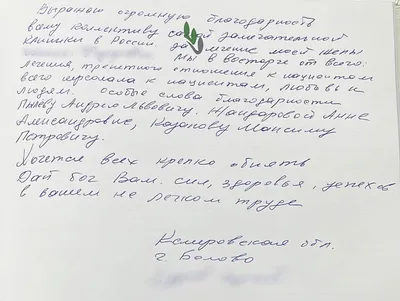 Выражаю огромную благодарность
всему коллективу самой замечательной
клиники в России. за лечение моей жены
Мы в восторге от всего:
лечения, трепетного отношения к пациентам
всего персонала к пациентам, любовь к
людям. особые слова благодарности
Пылёву Андрею Львовичу, Жандаровой Анне
Александравне, Казакову Максиму
Петровичу.
Хочется всех крепко обнять
Дай бог Вам. сил, здоровья, успехов
в вашем не легком труде
Кемеровская обл.
г Белово